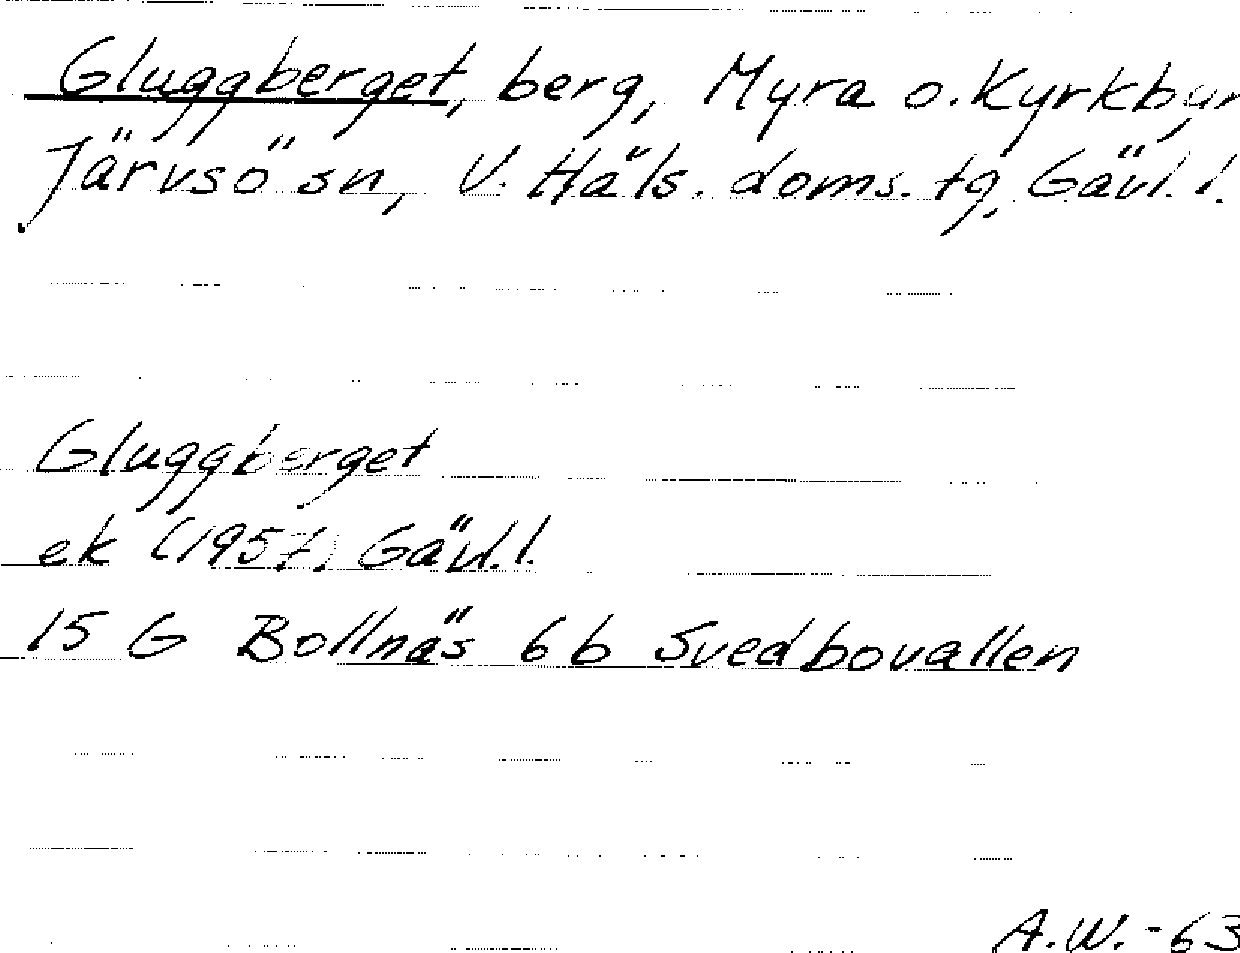 Gluggberget, berg, Myra o. Kyrkbyn
Järvsö sn, V. Häls. doms. tg, Gävl. l.
Gluggberget
ek (1957) Gävl. l.
15 G Bollnäs 6 b Svedbovallen
A.W. -63